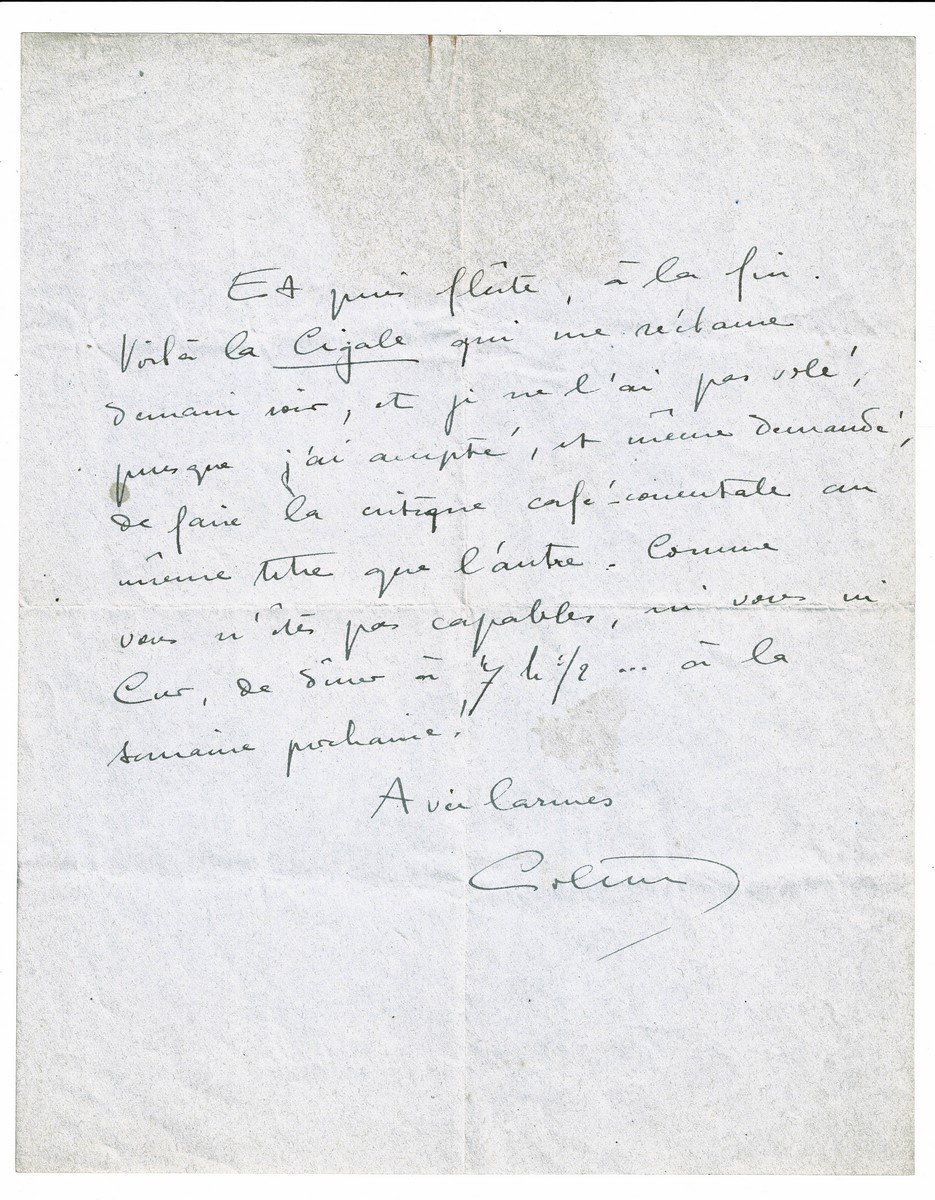 Et puis flûte, à la fin.
Voilà la Cigale qui me réclame
demain soir, et je ne l'ai pas volé,
puisque j'ai accepté, et même demandé,
de faire la critique café-concertale au
même titre que l'autre. Comme
vous n'êtes pas capables, ni vous ni
Cur, de dîner à 7 h 1/2 ... à la
semaine prochaine!
Avec larmes